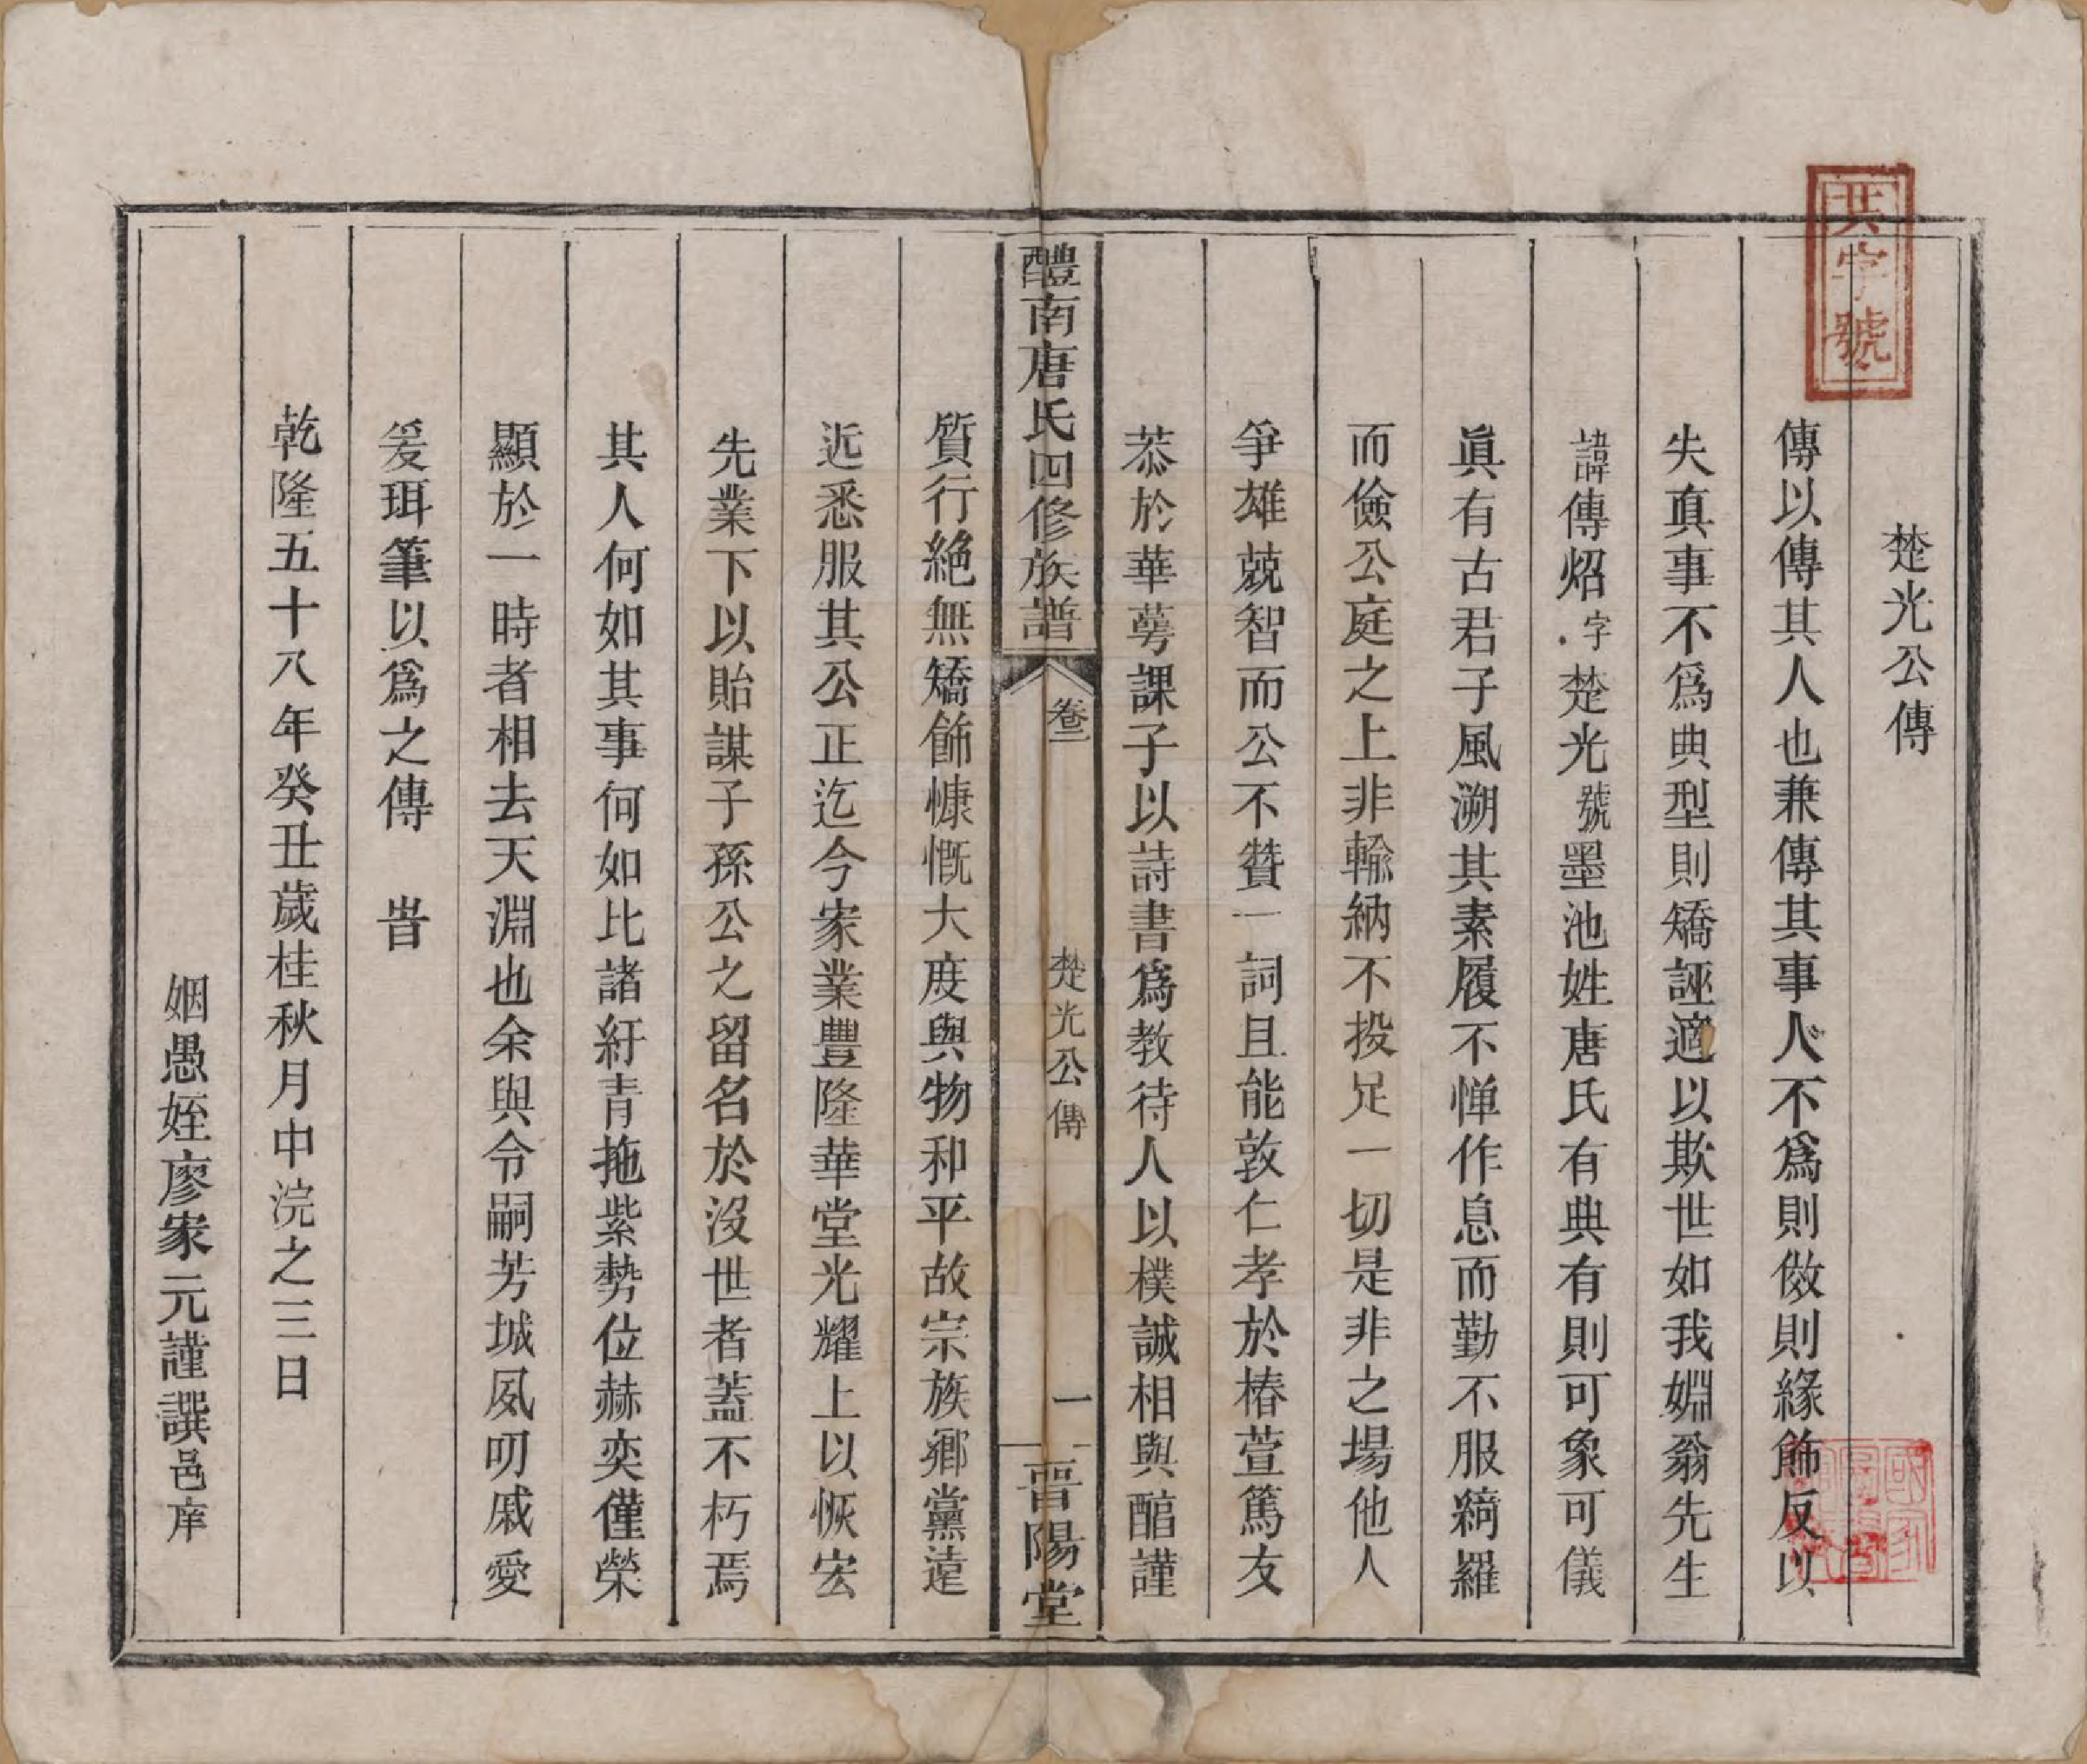 楚光公傳
傳以傳其人也兼傳其事人不爲則傚則緣飾反以
失眞事不爲典型則矯誣適以欺世如我婣翁先生
諱傳炤字楚光號墨池姓唐氏有典有則可象可儀
眞有古君子風溯其素履不惮作息而勤不服綺羅
而儉公庭之上非輸納不投足一切是非之場他人
爭雄競智而公不贊一詞且能敦仁孝於椿萱篤友
恭於華萼課子以詩書爲教待人以樸誠相與醕謹
醴南唐氏四修族譜
卷二
楚光公傳
一
晉陽堂
質行絶無矯飾慷慨大度與物和平故宗族鄉黨遠
近悉服其公正迄今家業豐隆華堂光耀上以恢宏
先業下以貽謀子孫公之留名於沒世者蓋不朽焉
其人何如其事何如比諸紆青拖紫勢位赫奕僅榮
顯於一時者相去天淵也余與令嗣芳城夙叨戚愛
爰珥筆以爲之傳　旹
乾隆五十八年癸丑歲桂秋月中浣之三日
姻愚姪廖家元謹譔邑庠
共字號